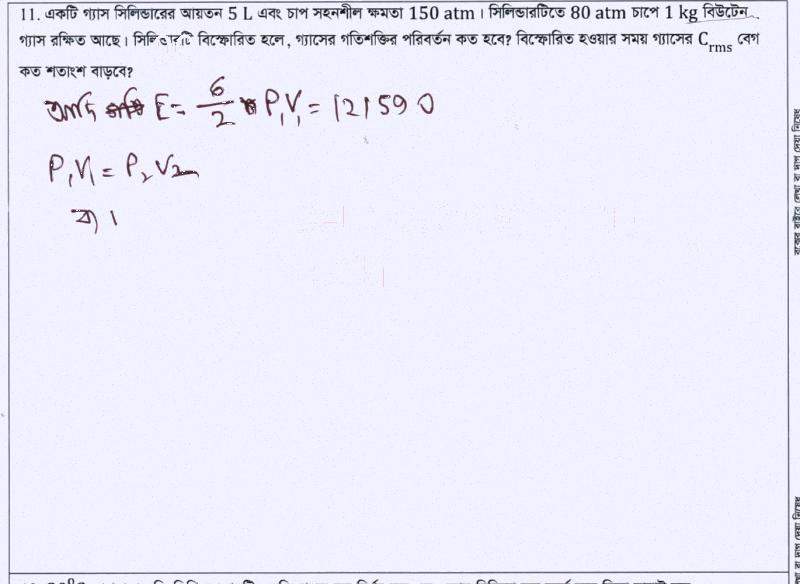 11. একটি গ্যাস সিলিন্ডারের আয়তন 5 L এবং চাপ সহনশীল ক্ষমতা 150 atm । সিলিন্ডারটিতে 80 atm চাপে 1 kg বিউটেন
গ্যাস রক্ষিত আছে। সিলিন্ডারটি বিস্ফোরিত হলে, গ্যাসের গতিশক্তির পরিবর্তন কত হবে? বিস্ফোরিত হওয়ার সময় গ্যাসের C_rms বেগ
কত শতাংশ বাড়বে?
আদি E = 6/2 P₁V₁ = 121590
P₁V₁ = P₂V₂
বা,